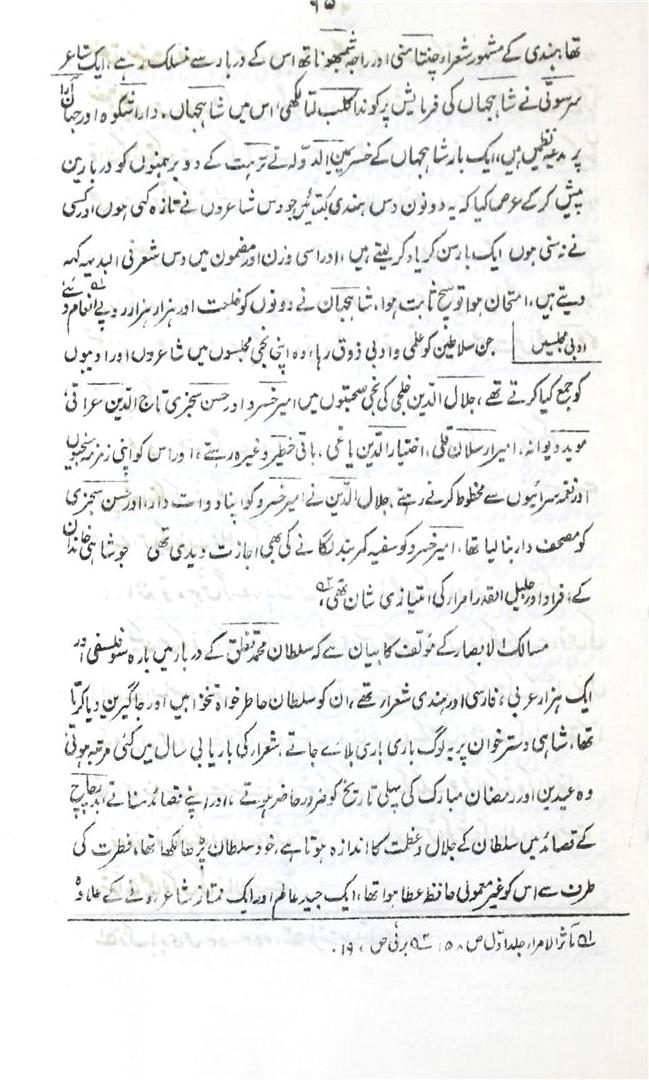 ۶۵
تھا، ہندی کے مشہور شعراء چنتامنی اور راجہ شمبھوناتھ اس کے دربار سے منسلک رہے، ایک شاعر
سرسوتی نے شاہجہاں کی فرمایش پر کوندا کلپ لتا لکھی، اس میں شاہجہاں، داراشکوہ اور جہاں آرا
پر مدحیہ نظمیں ہیں، ایک بار شاہجہاں کے خسر یمین الدولہ نے ترہت کے دو برہمنوں کو دربار میں
پیش کر کے عرض کیا کہ یہ دونوں دس ہندی کبتئیں جو دس شاعروں نے تازہ کہی ہوں اور کسی
نے نہ سنی ہوں ایک بار سن کر یاد کر لیتے ہیں، اور اسی وزن اور مضمون میں دس شعر فی البدیہہ کہہ
دیتے ہیں، امتحان ہوا تو صحیح ثابت ہوا، شاہجہان نے دونوں کو خلعت اور ہزار ہزار روپئے انعام دئے ۱؎
ادبی مجلسیں جن سلاطین کو علمی و ادبی ذوق رہا، وہ اپنی نجی مجلسوں میں شاعروں اور ادیبوں
کو جمع کیا کرتے تھے، جلال الدین خلجی کی نجی صحبتوں میں امیر خسرو اور حسن سنجری تاج الدین عراقی
موید دیوانہ، امیر ارسلان قلی، اختیار الدین یاغی، باقی خطیر وغیرہ رہتے، اور اس کو اپنی زمزمہ سنجیوں
اور نغمہ سرائیوں سے محظوظ کرتے رہتے، جلال الدین نے امیر خسرو کو اپنا دوات دار، اور حسن سنجری
کو مصحف دار بنا لیا تھا، امیر خسرو کو سفید کمر بند لگانے کی بھی اجازت دیدی تھی جو شاہی خاندان
کے افراد اور جلیل القدر امراء کی امتیازی شان تھی، ۲؎
مسالک الابصار کے مؤلف کا بیان ہے کہ سلطان محمد تغلق کے دربار میں بارہ سو فلسفی اور
ایک ہزار عربی، فارسی اور ہندی شعراء تھے، ان کو سلطان خاطر خواہ تنخواہیں اور جاگیریں دیا کرتا
تھا، شاہی دسترخوان پر یہ لوگ باری باری بلائے جاتے، شعراء کی باریابی سال میں کئی مرتبہ ہوتی
وہ عیدین اور رمضان مبارک کی پہلی تاریخ کو ضرور حاضر ہوتے، اور اپنے قصائد سناتے، بدر چاچ
کے قصائد میں سلطان کے جلال و عظمت کا اندازہ ہوتا ہے، خود سلطان پڑھا لکھا تھا، فطرت کی
طرف سے اس کو غیر معمولی حافظہ عطا ہوا تھا، ایک جید عالم اور ایک ممتاز شاعر ہونے کے علاوہ
۱؎ مآثر الامراء جلد اوّل ص ۱۵۰ ۲؎ برنی ص ۱۹،